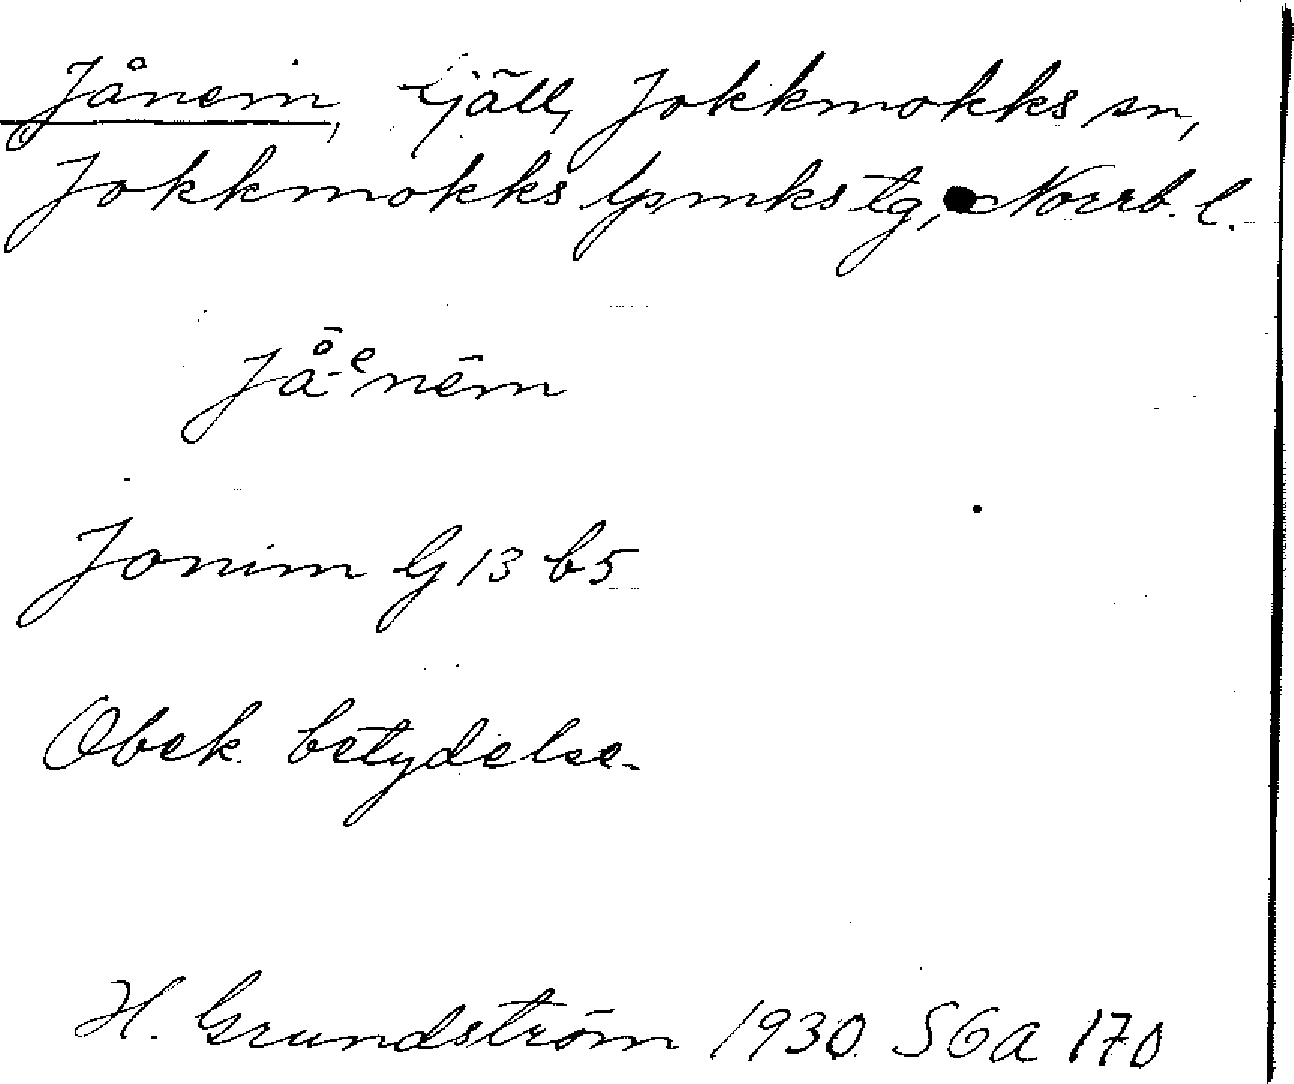 Jånem, fjäll, Jokkmokks sn,
Jokkmokks lpmks tg, Norrb. l.
Jå̄-ᵉnēm
Jonim G 13 b5
Obek. betydelse.
H. Grundström 1930. SGA 170